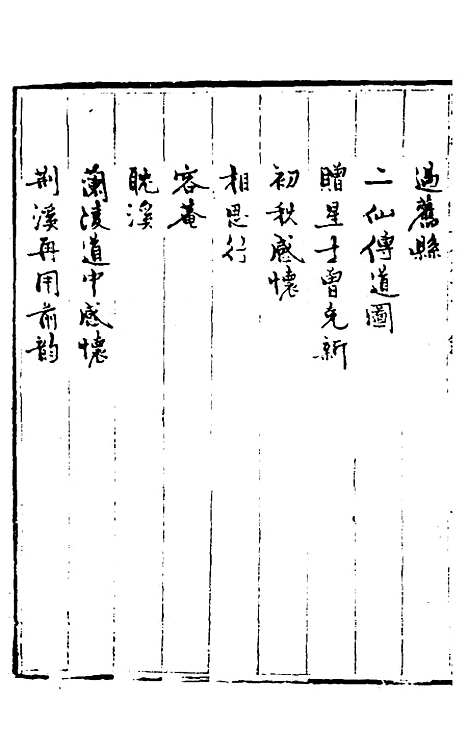 過舊縣
二仙傳道圖
贈星士曾克新
初秋感懷
相思行
容菴
聎溪
蘭陵道中感懷
荆溪再用前韵